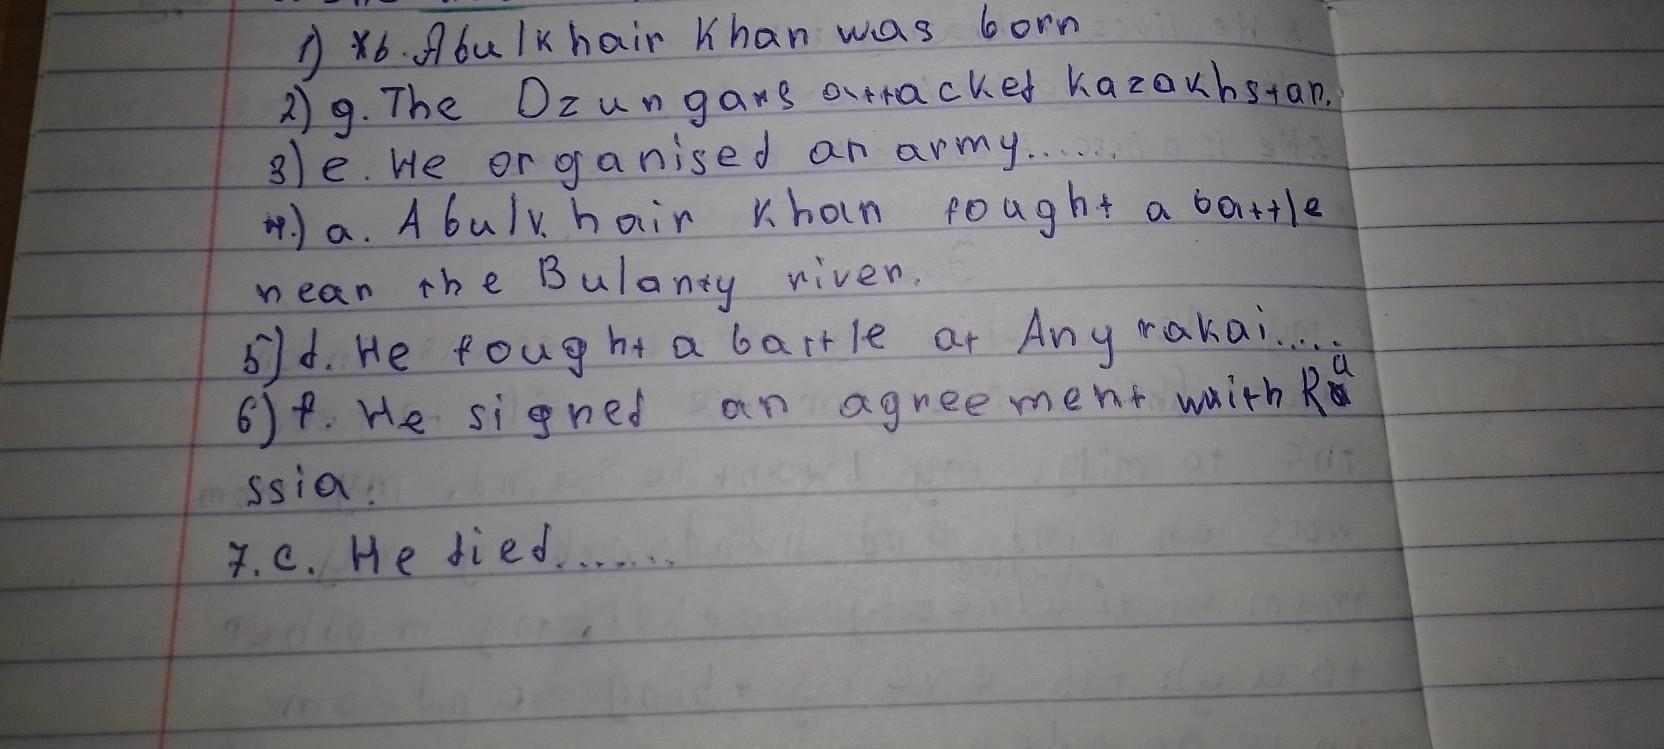 1) *b. Abulkhair Khan was born
2) g. The Dzungars attacked Kazakhstan.
3) e. He organised an army......
4.) a. Abulkhair Khan fought a battle
near the Bulanty river.
5) d. He fought a battle at Anyrakai.....
6) f. He signed an agreement with Ru
ssia.
7. c. He died.......